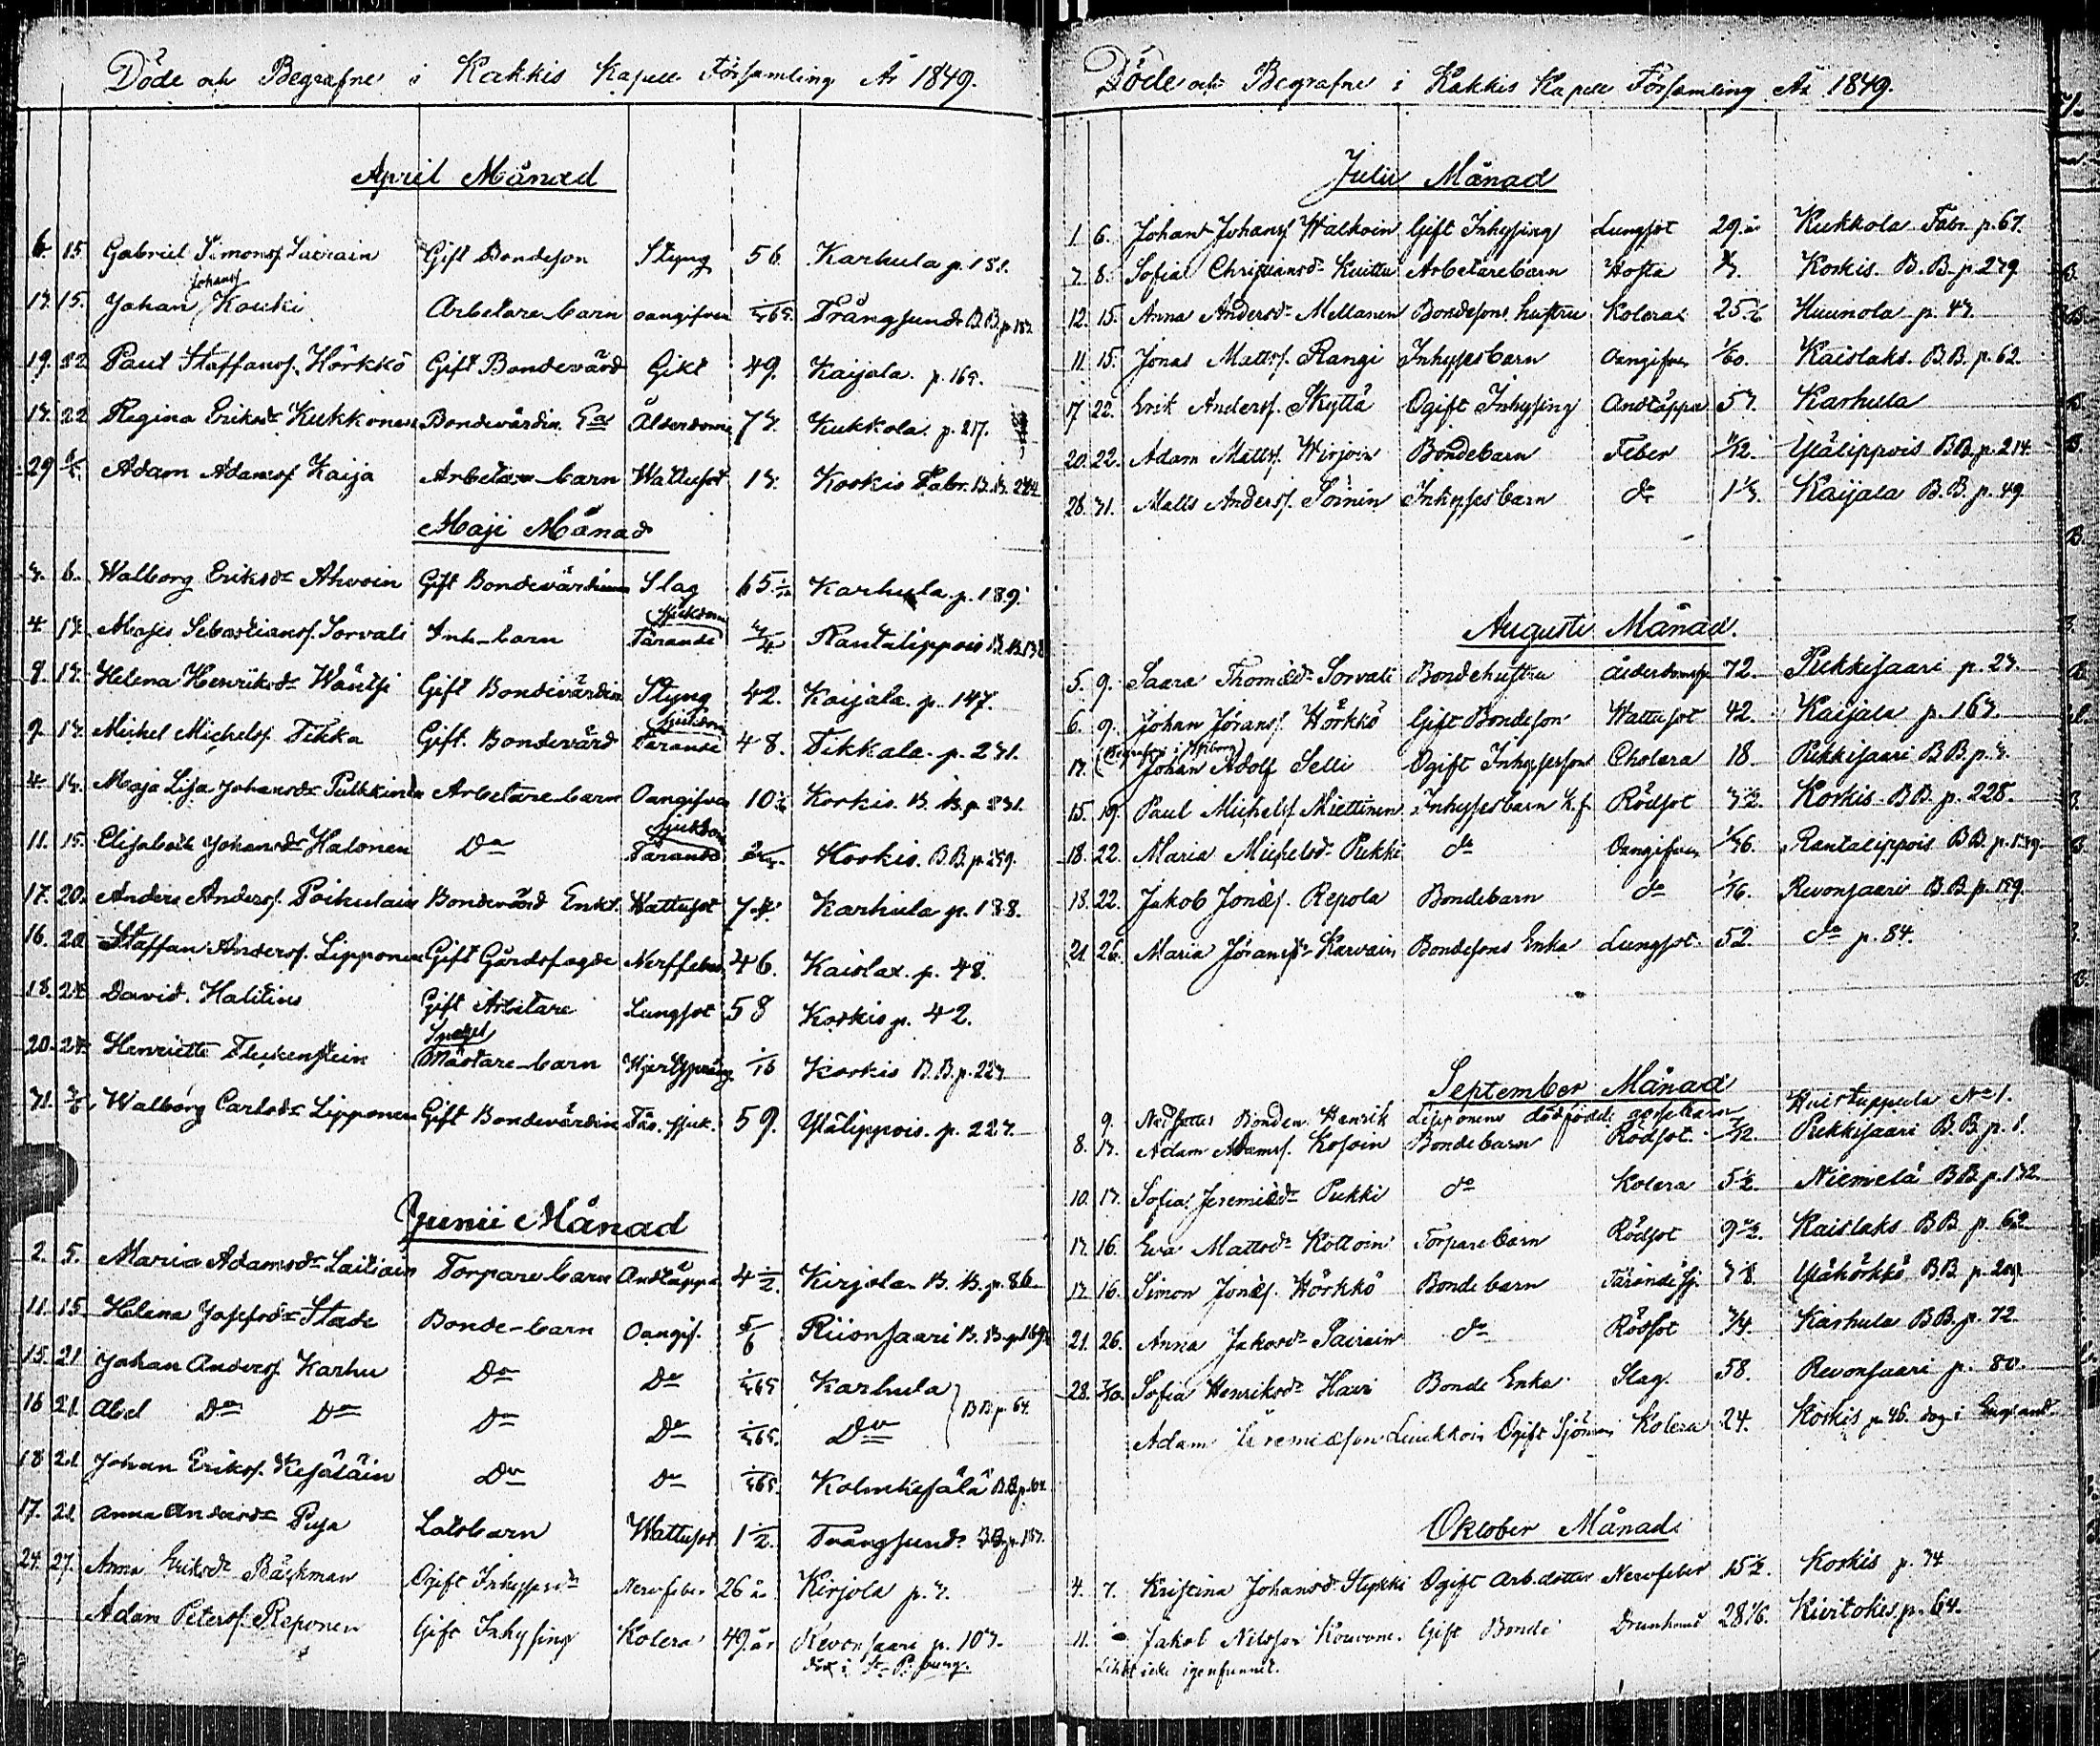 Döde och Begrafne i Kakkis Kapell Församling År 1849.
April Månad
6. 15. Gabriel Simonsf Sairain Gift Bondeson Styng 56. Karhula p. 181.
13. 15. Johan Johansf Kouki Arbetare barn oangifven 1/365. Trångsund B.B. p. 183.
19. 22 Paul Staffansf. Hörkkö Gift Bondevärd Gikt 49. Kaijala p. 165.
13. 22 Regina Eriksdr Kukkonen Bondevärdin Ålderdom 73. Kukkola p. 217.
29 Adam Adamsf Kaija Arbetare barn Wattusot 13. Koskis Fabr. B.B. 244
Maji Månad
3. 6. Walborg Eriksdr Ahvoin Gift Bondevärdinna Slag 65 Karhula p. 189.
4 13. Mojes Sebastiansf. Sorvali Inh-barn Tärande Sjukdom 3/4 Rantalippois B.B. 138
9. 13. Helena Henriksdr Wäntsi Gift Bondevärdin Styng 42. Kaijala p. 147.
9. 13. Michel Michelsf. Tikka Gift Bondevärd Tärande Sjukdom 48. Tikkala p. 231.
4 13. Maja Lisa Johansdr Pulkkinen Arbetare barn Oangifven 10 Koskis B.B. p. 231.
11. 15. Elisabeth Johansdr Halonen Do Tärande Sjukdom Koskis. B.B. p. 259.
17. 20. Anders Andersf. Poikulain Bondevärd Enkl. Wattusot 7 Karhula p. 188.
16. 20. Staffan Andersf. Lipponen Gift Gårdsfogde Nerffeber 46. Kaislax p. 48.
18. 24 David Halitius Gift Arbetare Lungsot 58 Koskis p. 42.
20. 24 Henriette Fleckenstein Mästare-barn Hjertspräng 1/6 Koskis B.B. p. 223
31. 3/6. Walborg Carlsdr Lipponen Gift Bondevärdin Tär. sjuk. 59. Ylälippois. p. 223.
Junii Månad
2. 5. Maria Adamsdr Laitiain Torpare barn Andtäppa 4 1/2. Kirjola B.B. p. 86
11. 15. Helena Josefsdr Stade Bonde-barn Oangif. 5/6 Riionsaari B.B. p. 169
15. 21 Johan Andersf. Karhu Do Do 1/365 Karhula
16 21. Abel Do Do Do Do 1/365. Do B.B. p. 64.
18 21 Johan Eriksf. Kesäläin Do Do 1/365. Kolmikesälä B.B. p. 62
17. 21 Anna Andersdr Pusa Lotsbarn Wattusot 1 1/2. Trångsund B.B. p. 183.
24. 27. Anna Eriksdr Bäckman Ogift Inhysesdr Nervfeber 26 år Kirjola p. 3.
Adam Petersf. Reponen Gift Inhysing Kolera 49 år Revonsaari p. 103.
död i St. P. burg.
Döde och Begrafne i Kakkis Kapell Församling År 1849.
Julii Månad
1 6. Johan Johansf Walkoin Gift Inhysing Lungsot 29. år Kukkola Fabr. p. 67.
7. 8. Sofia Christiansdr Kuittu Arbetarebarn Hosta Koskis. B.B. p. 279
12. 15. Anna Andersdr Mellanen Bondesons hustru Kolera 25 Huunola p. 43
11 15. Jonas Mattsf. Rangi Inhysesbarn Oangifven 1/60. Kaislaks. B.B. p. 62.
17 22. Erik Andersf. Skyttä Ogift Inhysing Andtäppa 53. Karhula
20. 22. Adam Mattsf. Wirjoin Bondebarn Feber Ylälippois BB. p. 214
26. 31. Matts Andersf. Soinin Inhysesbarn do 1 1/3. Kaijala B.B. p. 49.
Augusti Månad.
5. 9. Saara Thomædr Sorvali Bondehustru ålderdoms 72 Pukkisaari p. 23.
6. 9. Johan Jöransf. Hörkkö Gift Bondeson Wattusot 42. Kaijala p. 163.
(Begrafven i Wiborg)
13. Johan Adolf Selli Ogift Inhysesson Cholera 18 Pukkisaari BB p. 3.
15. 19. Paul Michelsf Miettinen Inhysesbarn Rödsot Koskis BB. p. 228.
18. 22. Maria Michelsdr Pukki do Oangifven Rantalippois BB. p. 139
18. 22. Jakob Jonæf. Repola Bondebarn do Revonsaari BB p. 159.
21. 26. Maria Jöransdr Karvain Bondesons Enka Lungsot. 52. do p. 84.
September Månad
9. Bonden Henrik Lipponens dödfödde gossebarn Huistuppula No 1.
8. 13. Adam Adamsf. Kosoin Bondebarn Rödsot. Pukkisaari B.B. p. 1.
10. 13. Sofia Jeremiædr Pukki do Kolera 5 1/2. Niemelä BB p. 132
13. 16. Eva Mattsdr Kottoin Torpare barn Rödsot 9 Kaislaks BB p. 62
13. 16. Simon Jonæf. Hörkkö Bonde barn Tärande Sj. Ylähörkkö BB p.
21. 26. Anna Jakobsdr Sairain do Rödsot 3/4. Karhula BB. p. 72.
28. Sofia Henriksdr Havi Bonde Enka Slag. 58. Revonsaari p. 80.
Adam Jeremiæson Linkkoin Ogift Sjöman Kolera 24. Koskis p. 46. dog i England.
Oktober Månad
4. 7. Kristina Johansdr Stykki Ogift Arb.dotter Nervfeber 15 1/2. Koskis p. 34
11. - Jakob Nilsson Kouvonen Gift Bonde Drunknad 28 1/6. Kiiritokis. p. 64.
Liket icke igenfunnet.